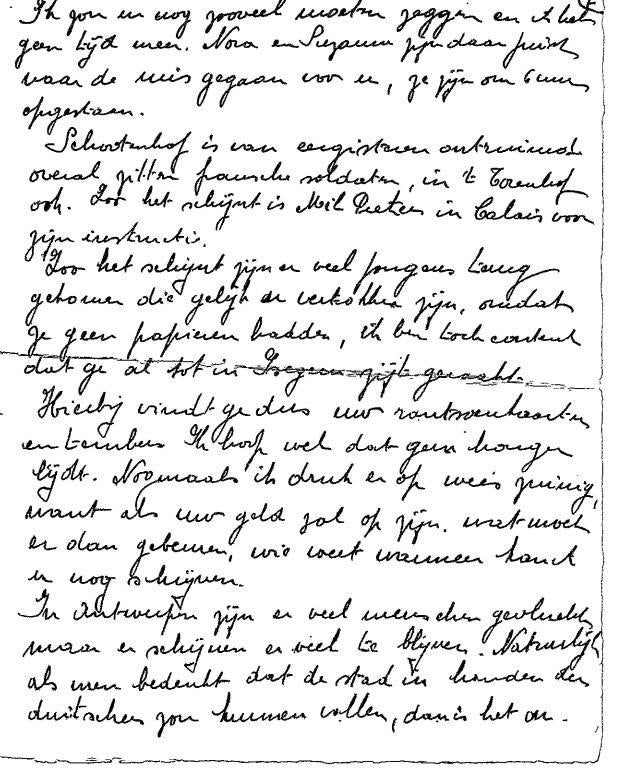 Ik zou u nog zooveel moeten zeggen en ik heb
geen tijd meer. Nora en Suzanne zijn daar juist
naar de mis gegaan voor u, ze zijn om 6 uur
opgestaan.
Schootenhof is van eergisteren ontruimd
overal zitten fransche soldaten, in 't Torenhof
ook. Zoo het schijnt is Mil Peeters in Calais voor
zijn instructie.
Zoo het schijnt zijn er veel jongens terug
gekomen die gelijk er vertrokken zijn, omdat
ze geen papieren hadden, ik ben toch content
dat ge al tot in Isegem zijt geraakt.
Hierbij vindt ge dus uw rantsoenkaarten
en tembers Ik hoop wel dat geen honger
lijdt. Nogmaals ik druk er op wees zuinig,
want als uw geld zal op zijn. wat moet
er dan gebeuren, wie weet wanneer kan ik
u nog schrijven.
In Antwerpen zijn er veel menschen gevlucht,
maar er schijnen er veel te blijven. Natuurlijk
als men bedenkt dat de stad in handen der
duitschers zou kunnen vallen, dan is het om.